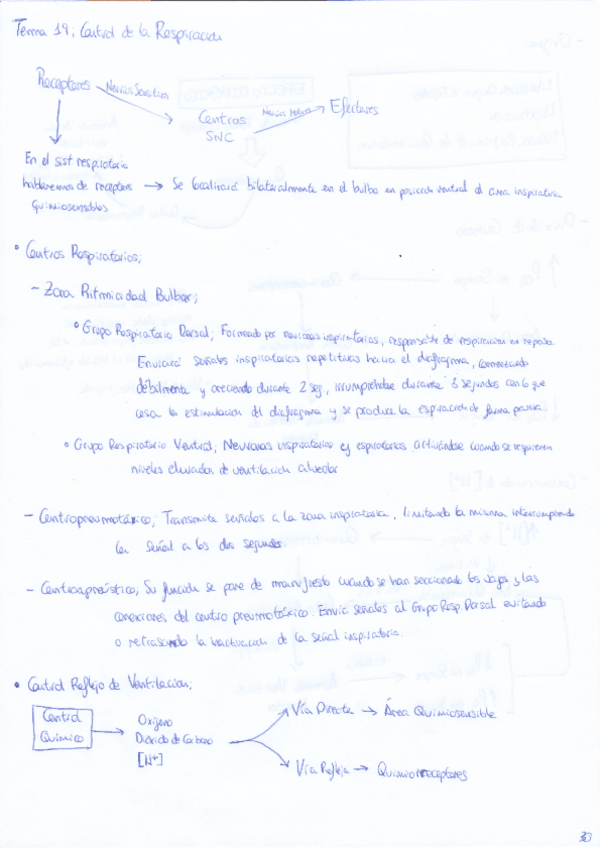 Tema 19: Control de la Respiración
Receptores
Nervios Sensitivos
Centros
SNC
Nervios Motores
Efectores
En el sist respiratorio
hablaremos de receptores → Se localizará bilateralmente en el bulbo en posición ventral al área inspiratoria
Quimiosensibles
• Centros Respiratorios;
- Zona Ritmicidad Bulbar;
• Grupo Respiratorio Dorsal; Formado por neuronas inspiratorias, responsable de respiración en reposo
Enviará señales inspiratorias repetitivas hacia el diafragma, comenzando
débilmente y creciendo durante 2 seg, irrumpiéndose durante 3 segundos con lo que
cesa la estimulación del diafragma y se produce la espiración de forma pasiva.
• Grupo Respiratorio Ventral; Neuronas inspiratorias y espiratorias, activándose cuando se requieren
niveles elevados de ventilación alveolar
- Centro pneumotáxico; Transmite señales a la zona inspiratoria, limitando la misma interrumpiendo
la señal a los dos segundos.
- Centro apnéustico; Su función se pone de manifiesto cuando se han seccionado los vagos y las
conexiones del centro pneumotáxico. Envía señales al Grupo Resp Dorsal evitando
o retrasando la inactivación de la señal inspiratoria.
• Control Reflejo de Ventilación;
Control
Químico
Oxígeno
Dióxido de Carbono
[H+]
Vía Directa → Área Quimiosensible
Vía Refleja → Quimiorreceptores